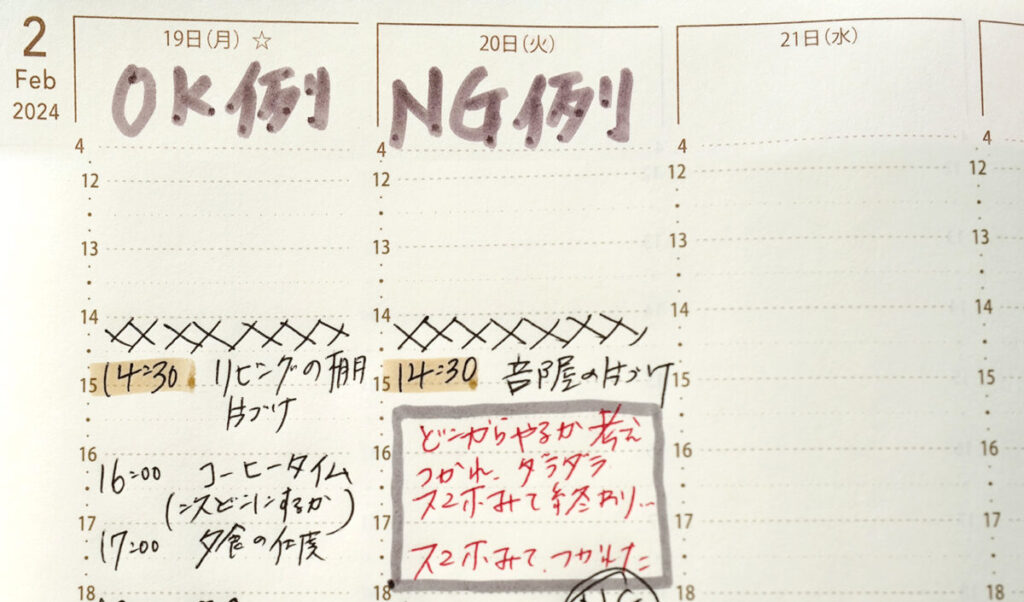 2
Feb
2024
19日(月) ☆
OK例
4
12
13
14
14:30 リビングの棚
15
片づけ
16
16:00 コーヒータイム
17
17:00 夕食の仕度
18
20日(火)
NG例
4
12
13
14
14:30 部屋の片づけ
15
どこからやるか考え
16
つかれ、ダラダラ
スマホみて終わり…
17
スマホみて、つかれた
18
NG
21日(水)
4
12
13
14
15
16
17
18
4
12
13
14
15
16
17
18